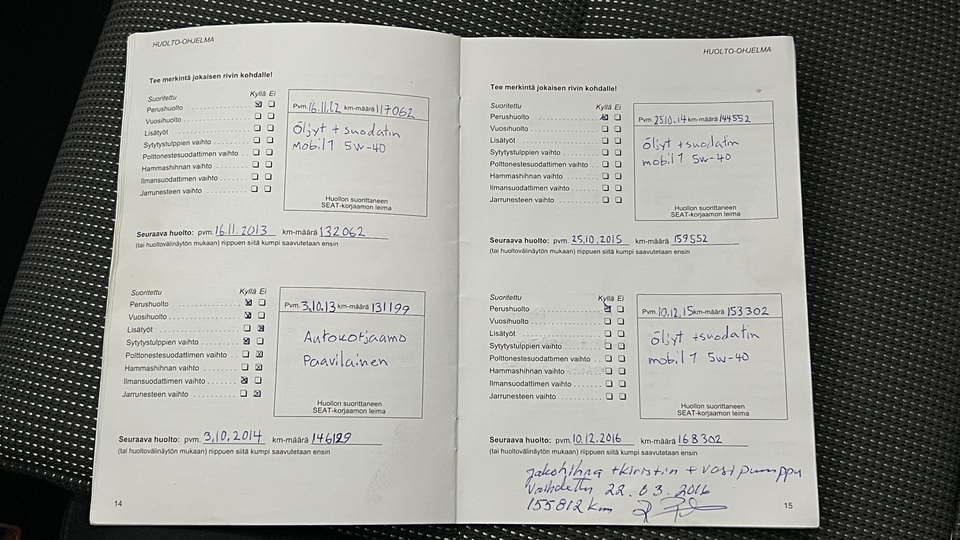 HUOLTO-OHJELMA
Tee merkintä jokaisen rivin kohdalle!
Suoritettu Kyllä Ei
Perushuolto
Vuosihuolto
Lisätyöt
Sytytystulppien vaihto
Polttonestesuodattimen vaihto
Hammashihnan vaihto
Ilmansuodattimen vaihto
Jarrunesteen vaihto
Pvm. 16.11.12 km-määrä 117062
Öljyt + suodatin
mobil 1 5w-40
Huollon suorittaneen
SEAT-korjaamon leima
Seuraava huolto: pvm. 16.11.2013 km-määrä 132062
(tai huoltovälinäytön mukaan) riippuen siitä kumpi saavutetaan ensin
Suoritettu Kyllä Ei
Perushuolto
Vuosihuolto
Lisätyöt
Sytytystulppien vaihto
Polttonestesuodattimen vaihto
Hammashihnan vaihto
Ilmansuodattimen vaihto
Jarrunesteen vaihto
Pvm. 3.10.13 km-määrä 131199
Autokorjaamo
Paavilainen
Huollon suorittaneen
SEAT-korjaamon leima
Seuraava huolto: pvm. 3.10.2014 km-määrä 146199
(tai huoltovälinäytön mukaan) riippuen siitä kumpi saavutetaan ensin
14
HUOLTO-OHJELMA
Tee merkintä jokaisen rivin kohdalle!
Suoritettu Kyllä Ei
Perushuolto
Vuosihuolto
Lisätyöt
Sytytystulppien vaihto
Polttonestesuodattimen vaihto
Hammashihnan vaihto
Ilmansuodattimen vaihto
Jarrunesteen vaihto
Pvm. 25.10.14 km-määrä 144552
öljyt + suodatin
mobil 1 5w-40
Huollon suorittaneen
SEAT-korjaamon leima
Seuraava huolto: pvm. 25.10.2015 km-määrä 159552
(tai huoltovälinäytön mukaan) riippuen siitä kumpi saavutetaan ensin
Suoritettu Kyllä Ei
Perushuolto
Vuosihuolto
Lisätyöt
Sytytystulppien vaihto
Polttonestesuodattimen vaihto
Hammashihnan vaihto
Ilmansuodattimen vaihto
Jarrunesteen vaihto
Pvm. 10.12.15 km-määrä 153302
öljyt + suodatin
mobil 1 5w-40
Huollon suorittaneen
SEAT-korjaamon leima
Seuraava huolto: pvm. 10.12.2016 km-määrä 168302
(tai huoltovälinäytön mukaan) riippuen siitä kumpi saavutetaan ensin
jakohihna + kiristin + vesipumppu
vaihdettu 22.03.2016
155812 km
15